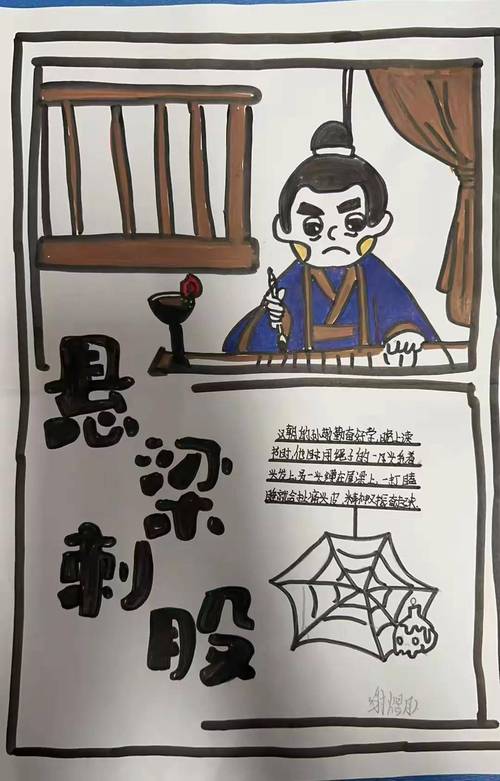 悬
梁
刺
股
汉朝的孙敬勤奋好学,晚上读
书时,他时用绳子的一头系着
头发上,另一头绑在屋梁上,一打瞌
睡就会扯痛头皮